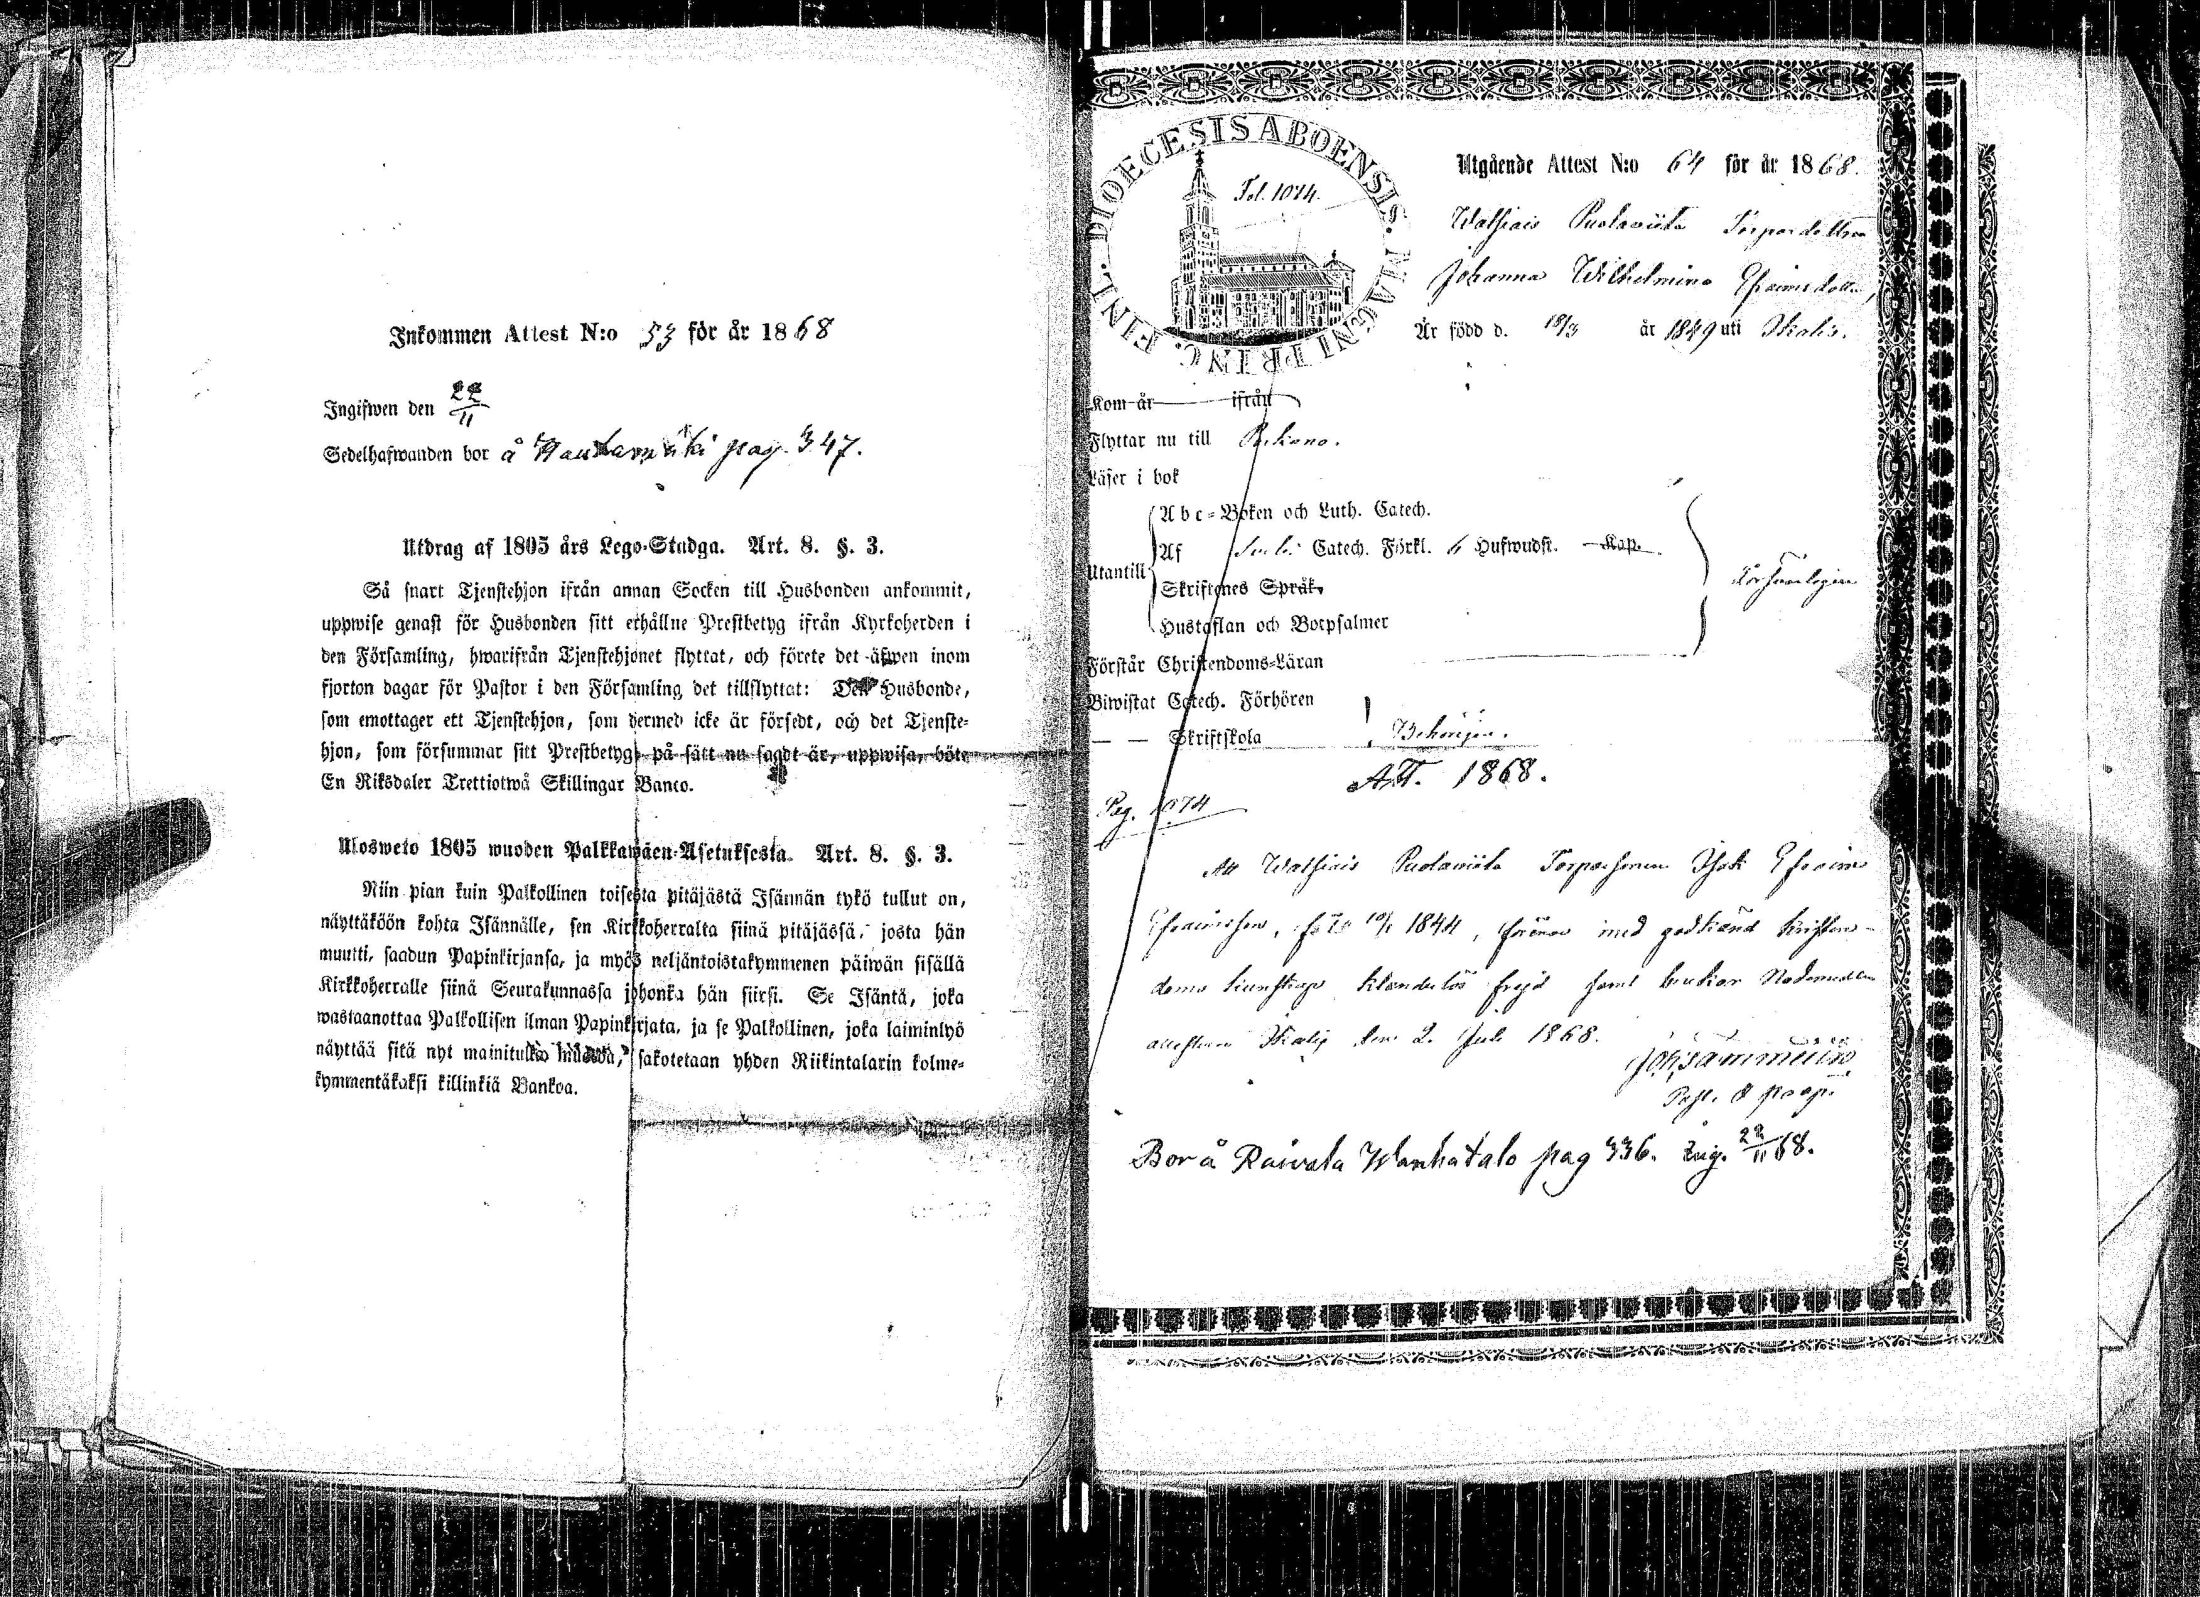 Inkommen Attest N:o 53 för år 1868
Ingifwen den 22/11
Sedelhafwanden bor å pag. 347.
Utdrag af 1805 års Lego-Stadga. Art. 8. §. 3.
Så snart Tjenstehjon ifrån annan Socken till Husbonden ankommit,
uppwise genast för Husbonden sitt erhållne Prestbetyg ifrån Kyrkoherden i
den Församling, hwarifrån Tjenstehjonet flyttat, och förete det äfwen inom
fjorton dagar för Pastor i den Församling det tillflyttat: Den Husbonde,
som emottager ett Tjenstehjon, som dermed icke är försedt, och det Tjenste-
hjon, som försummar sitt Prestbetyg på sätt nu sagdt är, uppwisa, böte
En Riksdaler Trettiotwå Skillingar Banco.
Ulosweto 1805 wuoden Palkkawäen-Asetuksesta. Art. 8. §. 3.
Niin pian kuin Palkollinen toisesta pitäjästä Isännän tykö tullut on,
näyttäköön kohta Isännälle, sen Kirkkoherralta siinä pitäjässä, josta hän
muutti, saadun Papinkirjansa, ja myös neljäntoistakymmenen päiwän sisällä
Kirkkoherralle siinä Seurakunnassa johonka hän siirsi. Se Isäntä, joka
wastaanottaa Palkollisen ilman Papinkirjata, ja se Palkollinen, joka laiminlyö
näyttää sitä nyt mainitulla muowa, sakotetaan yhden Riikintalarin kolme-
kymmentäkaksi killinkiä Bankoa.
DIOECESIS ABOENSIS. MAGNI PRINC. FINL.
Fol. 1074.
Utgående Attest N:o 64 för år 1868.
Puolaviita Torpardottren
Johanna Wilhelmina Efraimsdotter,
Är född d. 18/3 år 1849 uti Ikalis.
Kom år ifrån
Flyttar nu till Parkano.
Läser i bok
Utantill
Abc-Boken och Luth. Catech.
Af Catech. Förkl. 6 Hufwudst. Kap.
Skriftenes Språk,
Hustaflan och Botpsalmer
Förstår Christendoms-Läran
Biwistat Catech. Förhören
— — Skriftskola Behörigen.
A.T. 1868.
Pag. 1074
Att Puolaviita Torparsonen Isak Efraim
Efraimsson, född 1844, förenar med godkänd kristen-
doms kunskap klanderlös frejd samt brukar Nådemedlen
attesteras Ikalis den 2. Juli 1868.
Bor å Raivala Wanhatalo pag 336. Ing. 22/11 68.